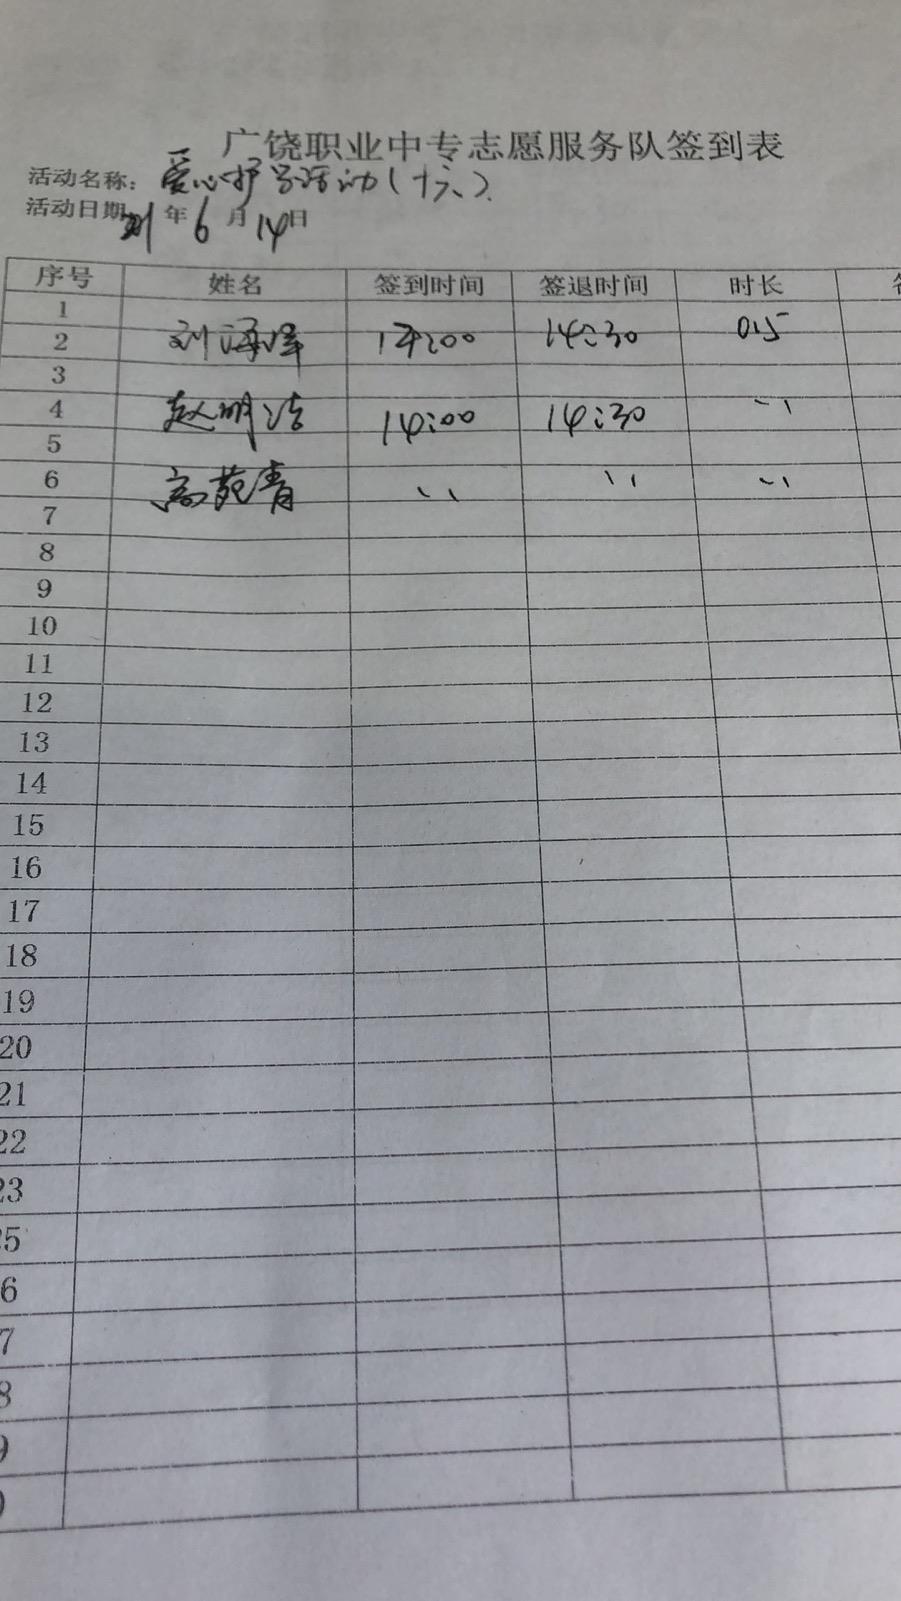 广饶职业中专志愿服务队签到表
活动名称：爱心护学活动（十六）
活动日期 21 年 6 月 14 日
序号 姓名 签到时间 签退时间 时长
1
2 刘泽洋 14:00 14:30 0.5
3
4 赵明洁 14:00 14:30 〃
5
6 高苑青 〃 〃 〃
7
8
9
10
11
12
13
14
15
16
17
18
19
20
21
22
23
25
6
7
8
9